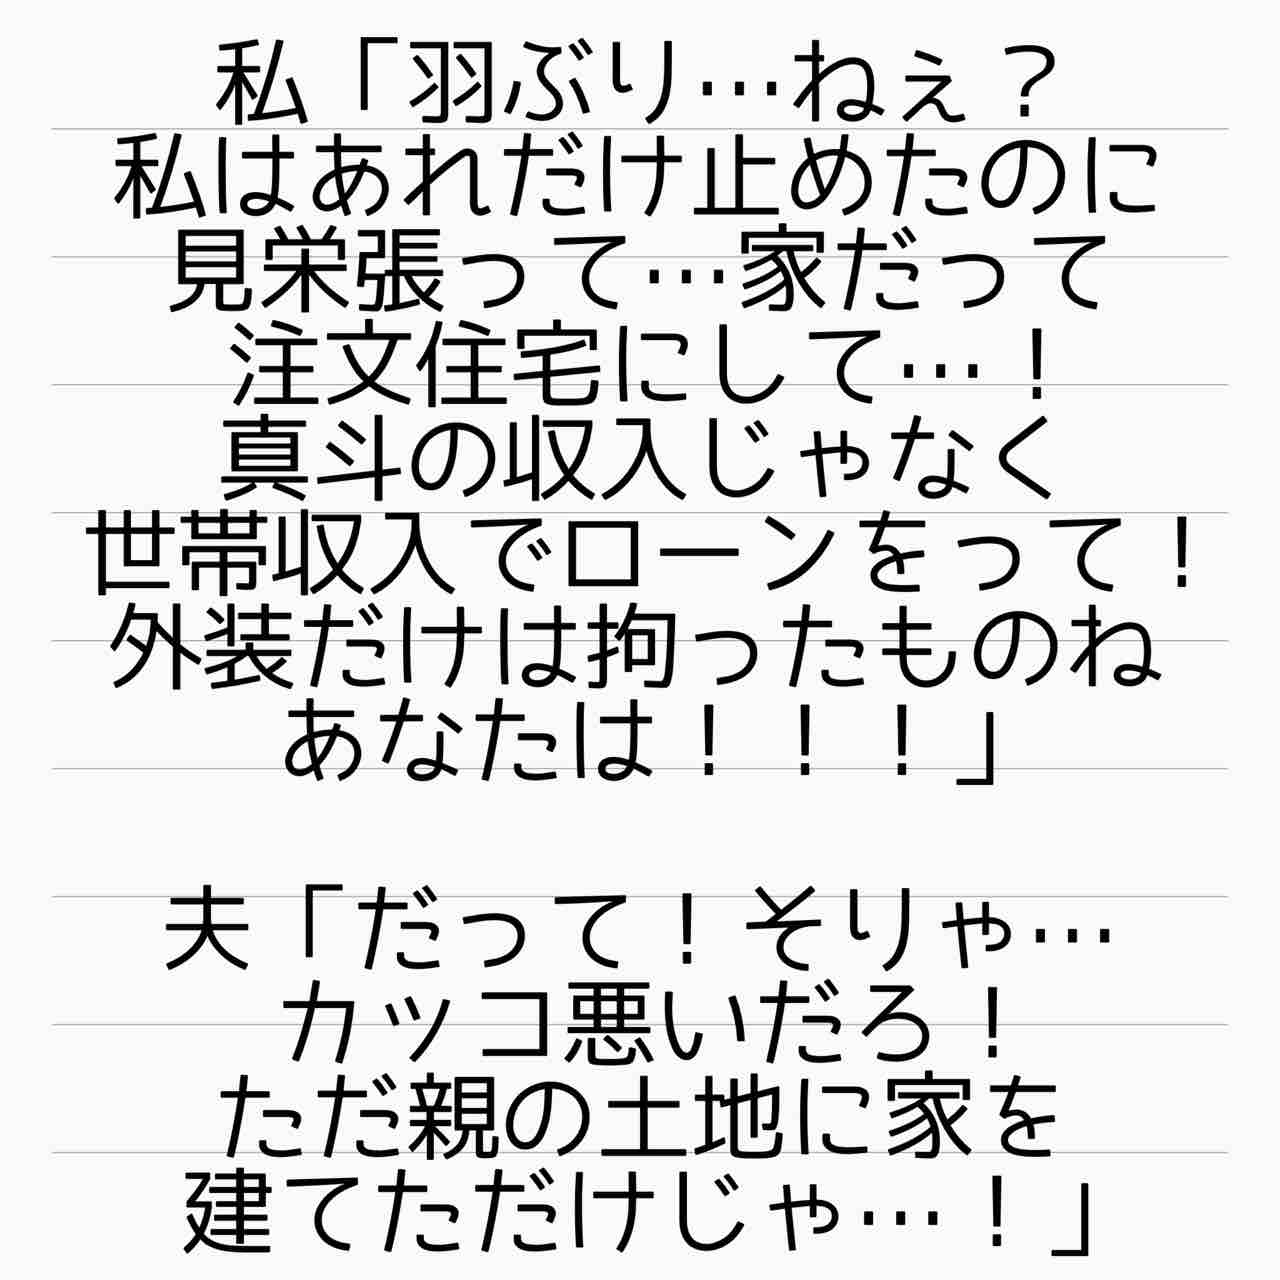 私「羽ぶり…ねぇ？
私はあれだけ止めたのに
見栄張って…家だって
注文住宅にして…！
真斗の収入じゃなく
世帯収入でローンをって！
外装だけは拘ったものね
あなたは！！！」
夫「だって！そりゃ…
カッコ悪いだろ！
ただ親の土地に家を
建てただけじゃ…！」